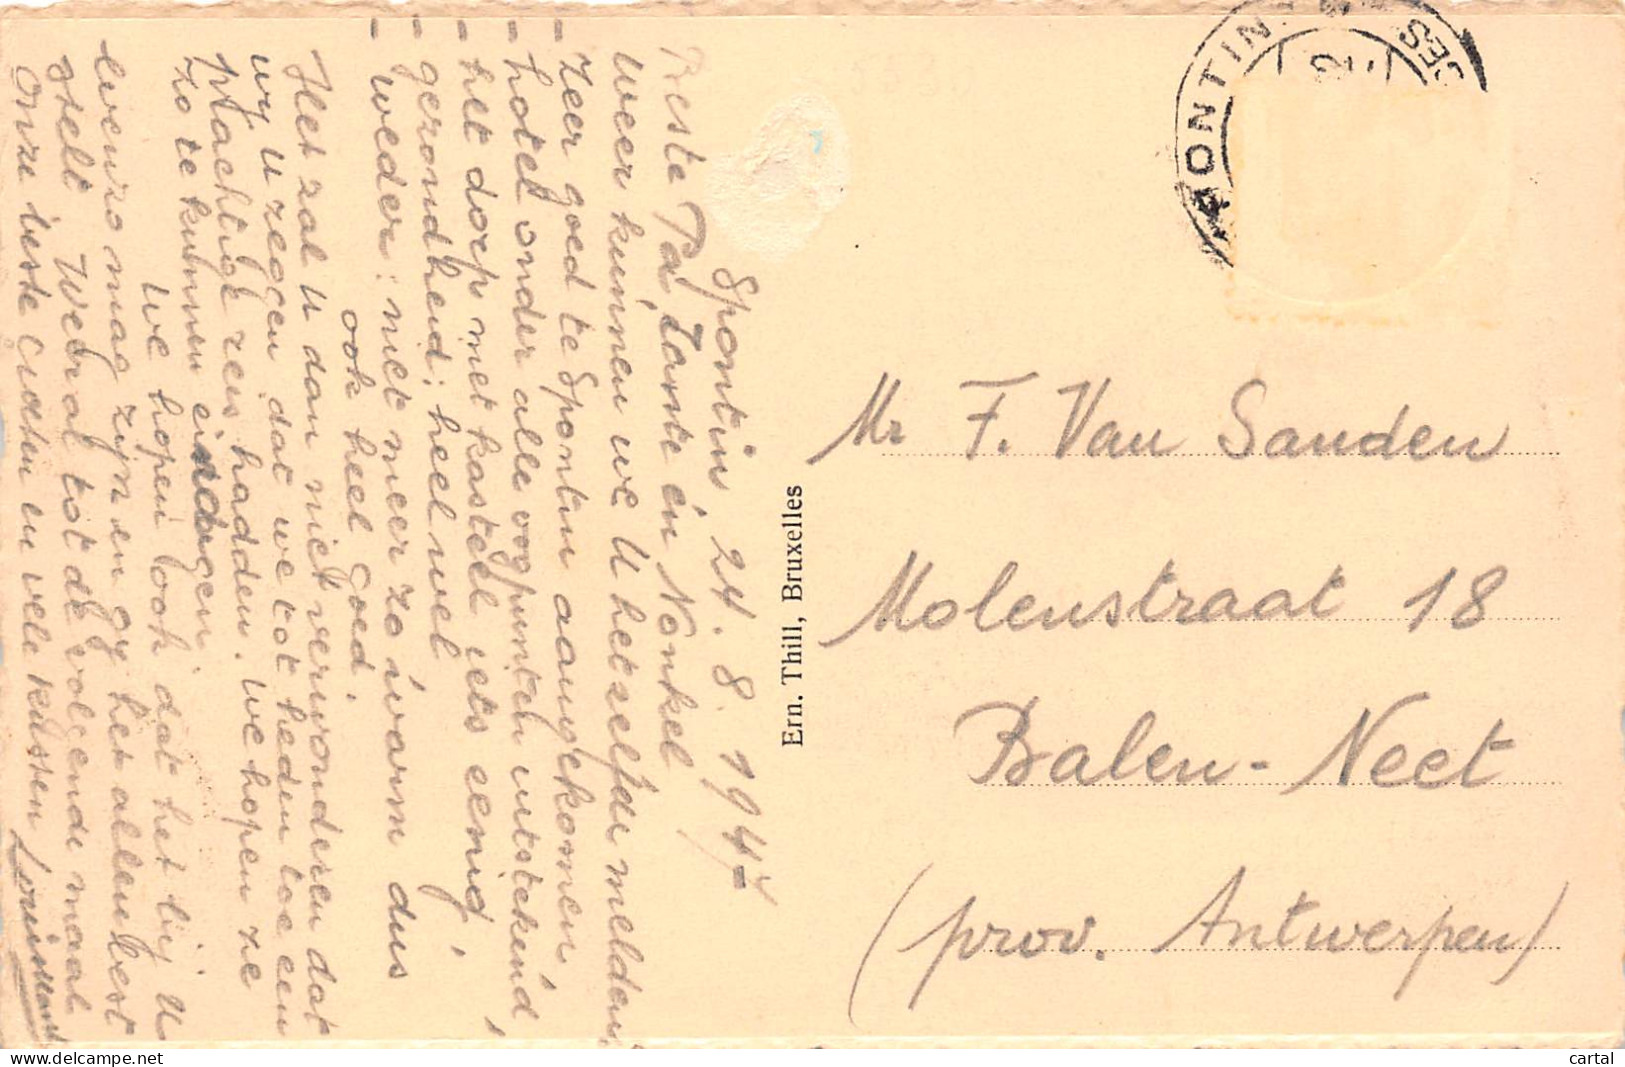 Spontin, 24. 8. 1947
Beste Pa Tante en Nonkel
Weer kunnen we U hetzelfde melden,
- Zeer goed te Spontin aangekomen,
- hotel onder alle oogpunten uitstekend,
- het dorp met kasteel iets eenig,
- gezondheid: heel wel
- weder: niet meer zo warm dus
ook heel goed.
Het zal U dan niet verwonderen dat
wij U zeggen dat we tot heden toe een
prachtige reis hadden. We hopen ze
zo te kunnen eindigen.
We hopen ook dat het bij U
evenzo mag zijn en gij het allen best
stelt. Weeral tot de volgende maal
Onze beste groeten en vele kussen
Mr F. Van Sanden
Molenstraat 18
Balen-Neet
(prov. Antwerpen)
Ern. Thill, Bruxelles
delcampe.net
cartal